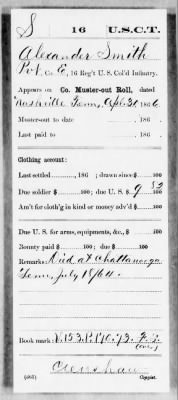 S 16 U.S.C.T.
Alexander Smith
Pvt, Co. E, 16 Reg't U. S. Col'd Infantry.
Appears on Co. Muster-out Roll, dated
Nashville Tenn, Apl. 30, 1866.
Muster-out to date , 186 .
Last paid to , 186 .
Clothing account:
Last settled , 186 ; drawn since $ 100
Due soldier $ 100; due U. S. $ 9 52/100
Am't for cloth'g in kind or money adv'd $ 100
Due U. S. for arms, equipments, &c., $ 100
Bounty paid $ 100; due $ 100
Remarks: Died at Chattanooga
Tenn, July 1864.
Book mark:
(over)
Crenshaw
(861) Copyist.